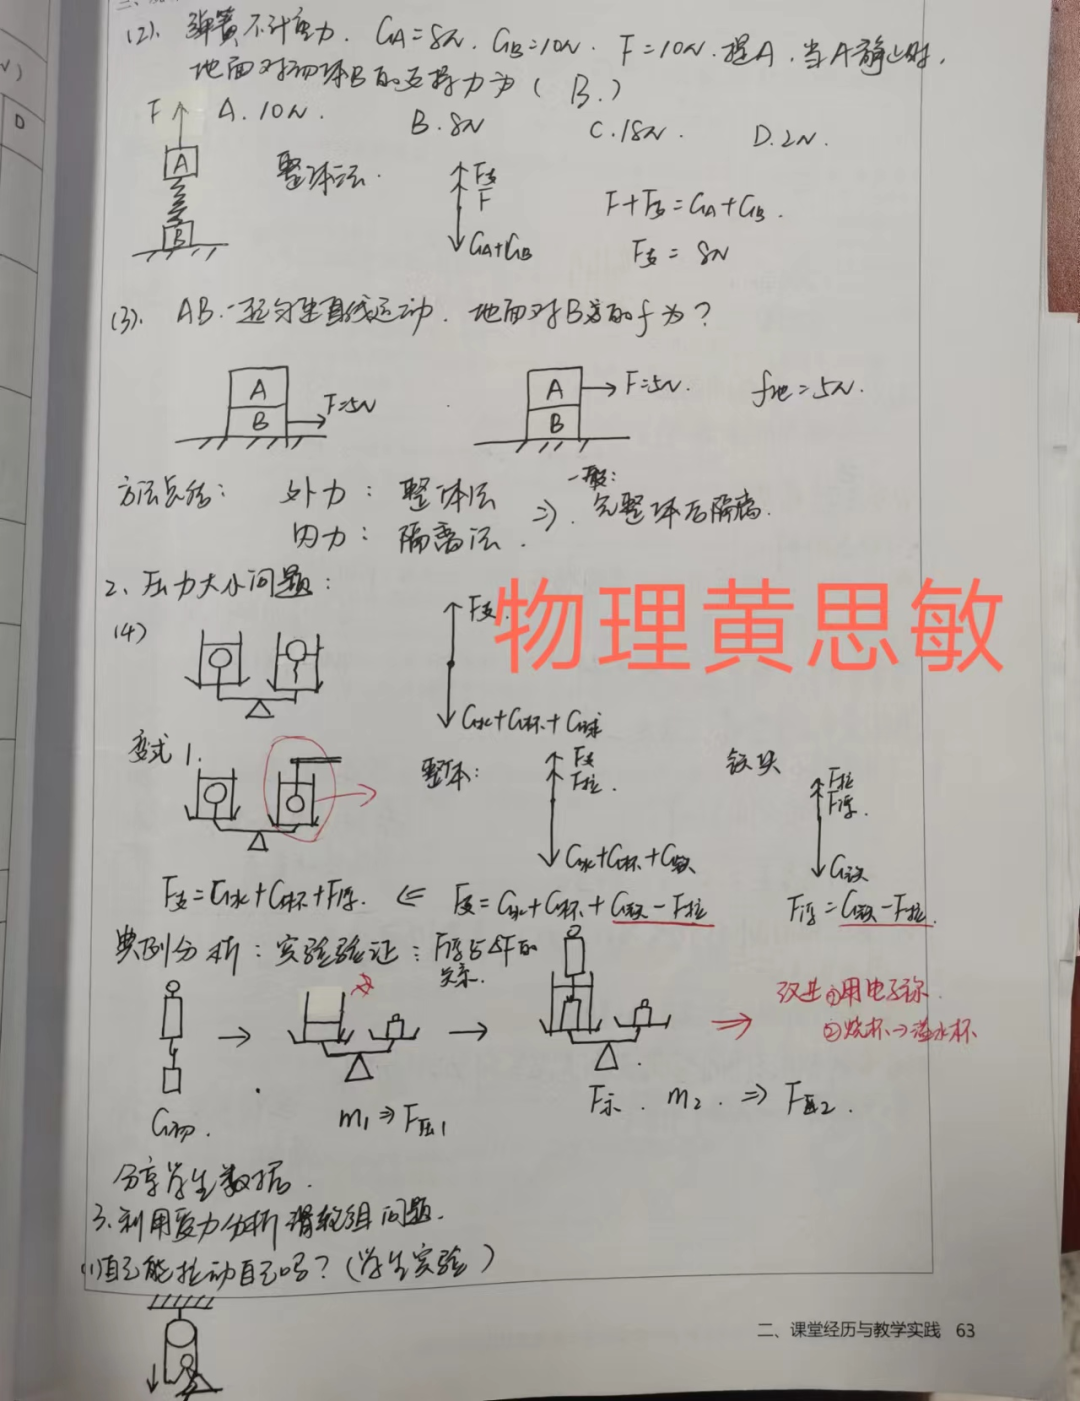 (2). 弹簧不计重力. GA=8N. GB=10N. F=10N. 提A, 当A静止时,
地面对物体B的支持力为 ( B. )
F A. 10N. B. 8N C. 18N. D. 2N.
D
A
B
整体法.
F支
F
GA+GB
F+F支=GA+GB.
F支= 8N
(3). AB一起匀速直线运动. 地面对B的f为?
A
B
F=5N
A
B
F=5N.
f地=5N.
方法总结: 外力: 整体法
内力: 隔离法.
⇒ 一般:
先整体后隔离.
2、压力大小问题:
(4)
F支.
G水+G杯+G球
物理黄思敏
变式1.
整体:
F支
F拉.
G水+G杯+G铁
铁块
F拉
F浮.
G铁
F支=G水+G杯+F浮. ⇐ F支=G水+G杯+G铁-F拉
F浮=G铁-F拉.
典例分析: 实验验证: F浮与ΔF的
关系.
改进①用电子称.
②烧杯→溢水杯
G物.
m1⇒F压1
F示. m2. ⇒F压2.
分享学生数据.
3、利用受力分析滑轮组问题.
(1)自己能拉动自己吗? (学生实验)
二、课堂经历与教学实践 63